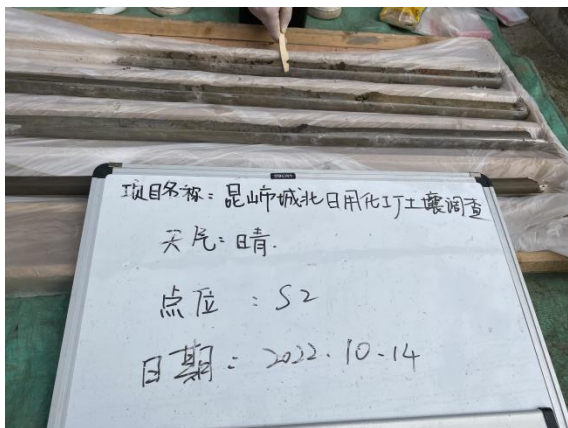 项目名称：昆山市城北日用化工厂土壤调查
天气：晴.
点位：S2
日期：2022.10.14